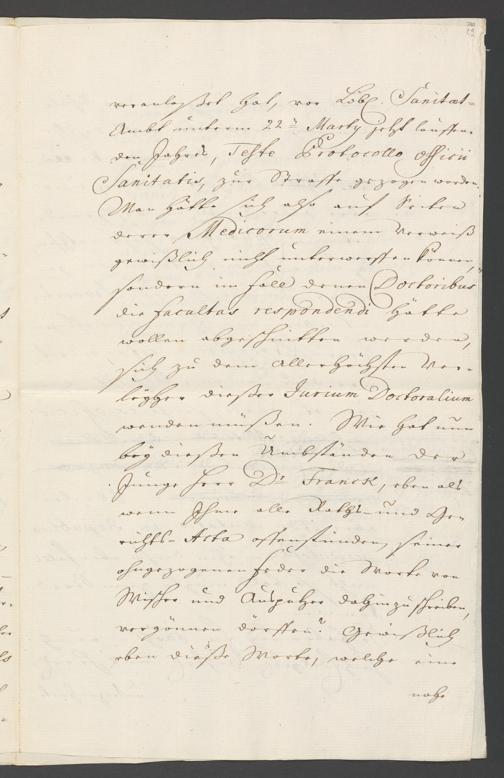 veranlaßet hat, vor Löbl. Sanitæt-
Ambt unterm 22ten Marty jetzt lauffen-
den Jahrs, Teste Protocollo officii
Sanitatis, zur Straffe gezogen worden.
Man hätte sich also auf Seiten
derer Medicorum einem Verweiß
gewißlich nicht unterwerffen können,
sondern im fall denen Doctoribus
die facultas respondendi hätte
wollen abgeschnitten werden,
sich zu dem Allerhöchsten Ver-
leyher dießer Jurium Doctoralium
wenden müßen. Wie hat nun
bey dießen Umbständen der
Junge Herr Dr. Franck, eben als
wenn Ihme alle Raths- und Ge-
richts-Acta offenstünden, seiner
ohngezogenen feder die Worte von
Wischer und Ausputzer dahinzuschreiben,
vergönnen dörffen? Gewißlich
eben dieße Worte, welche eine
nahe